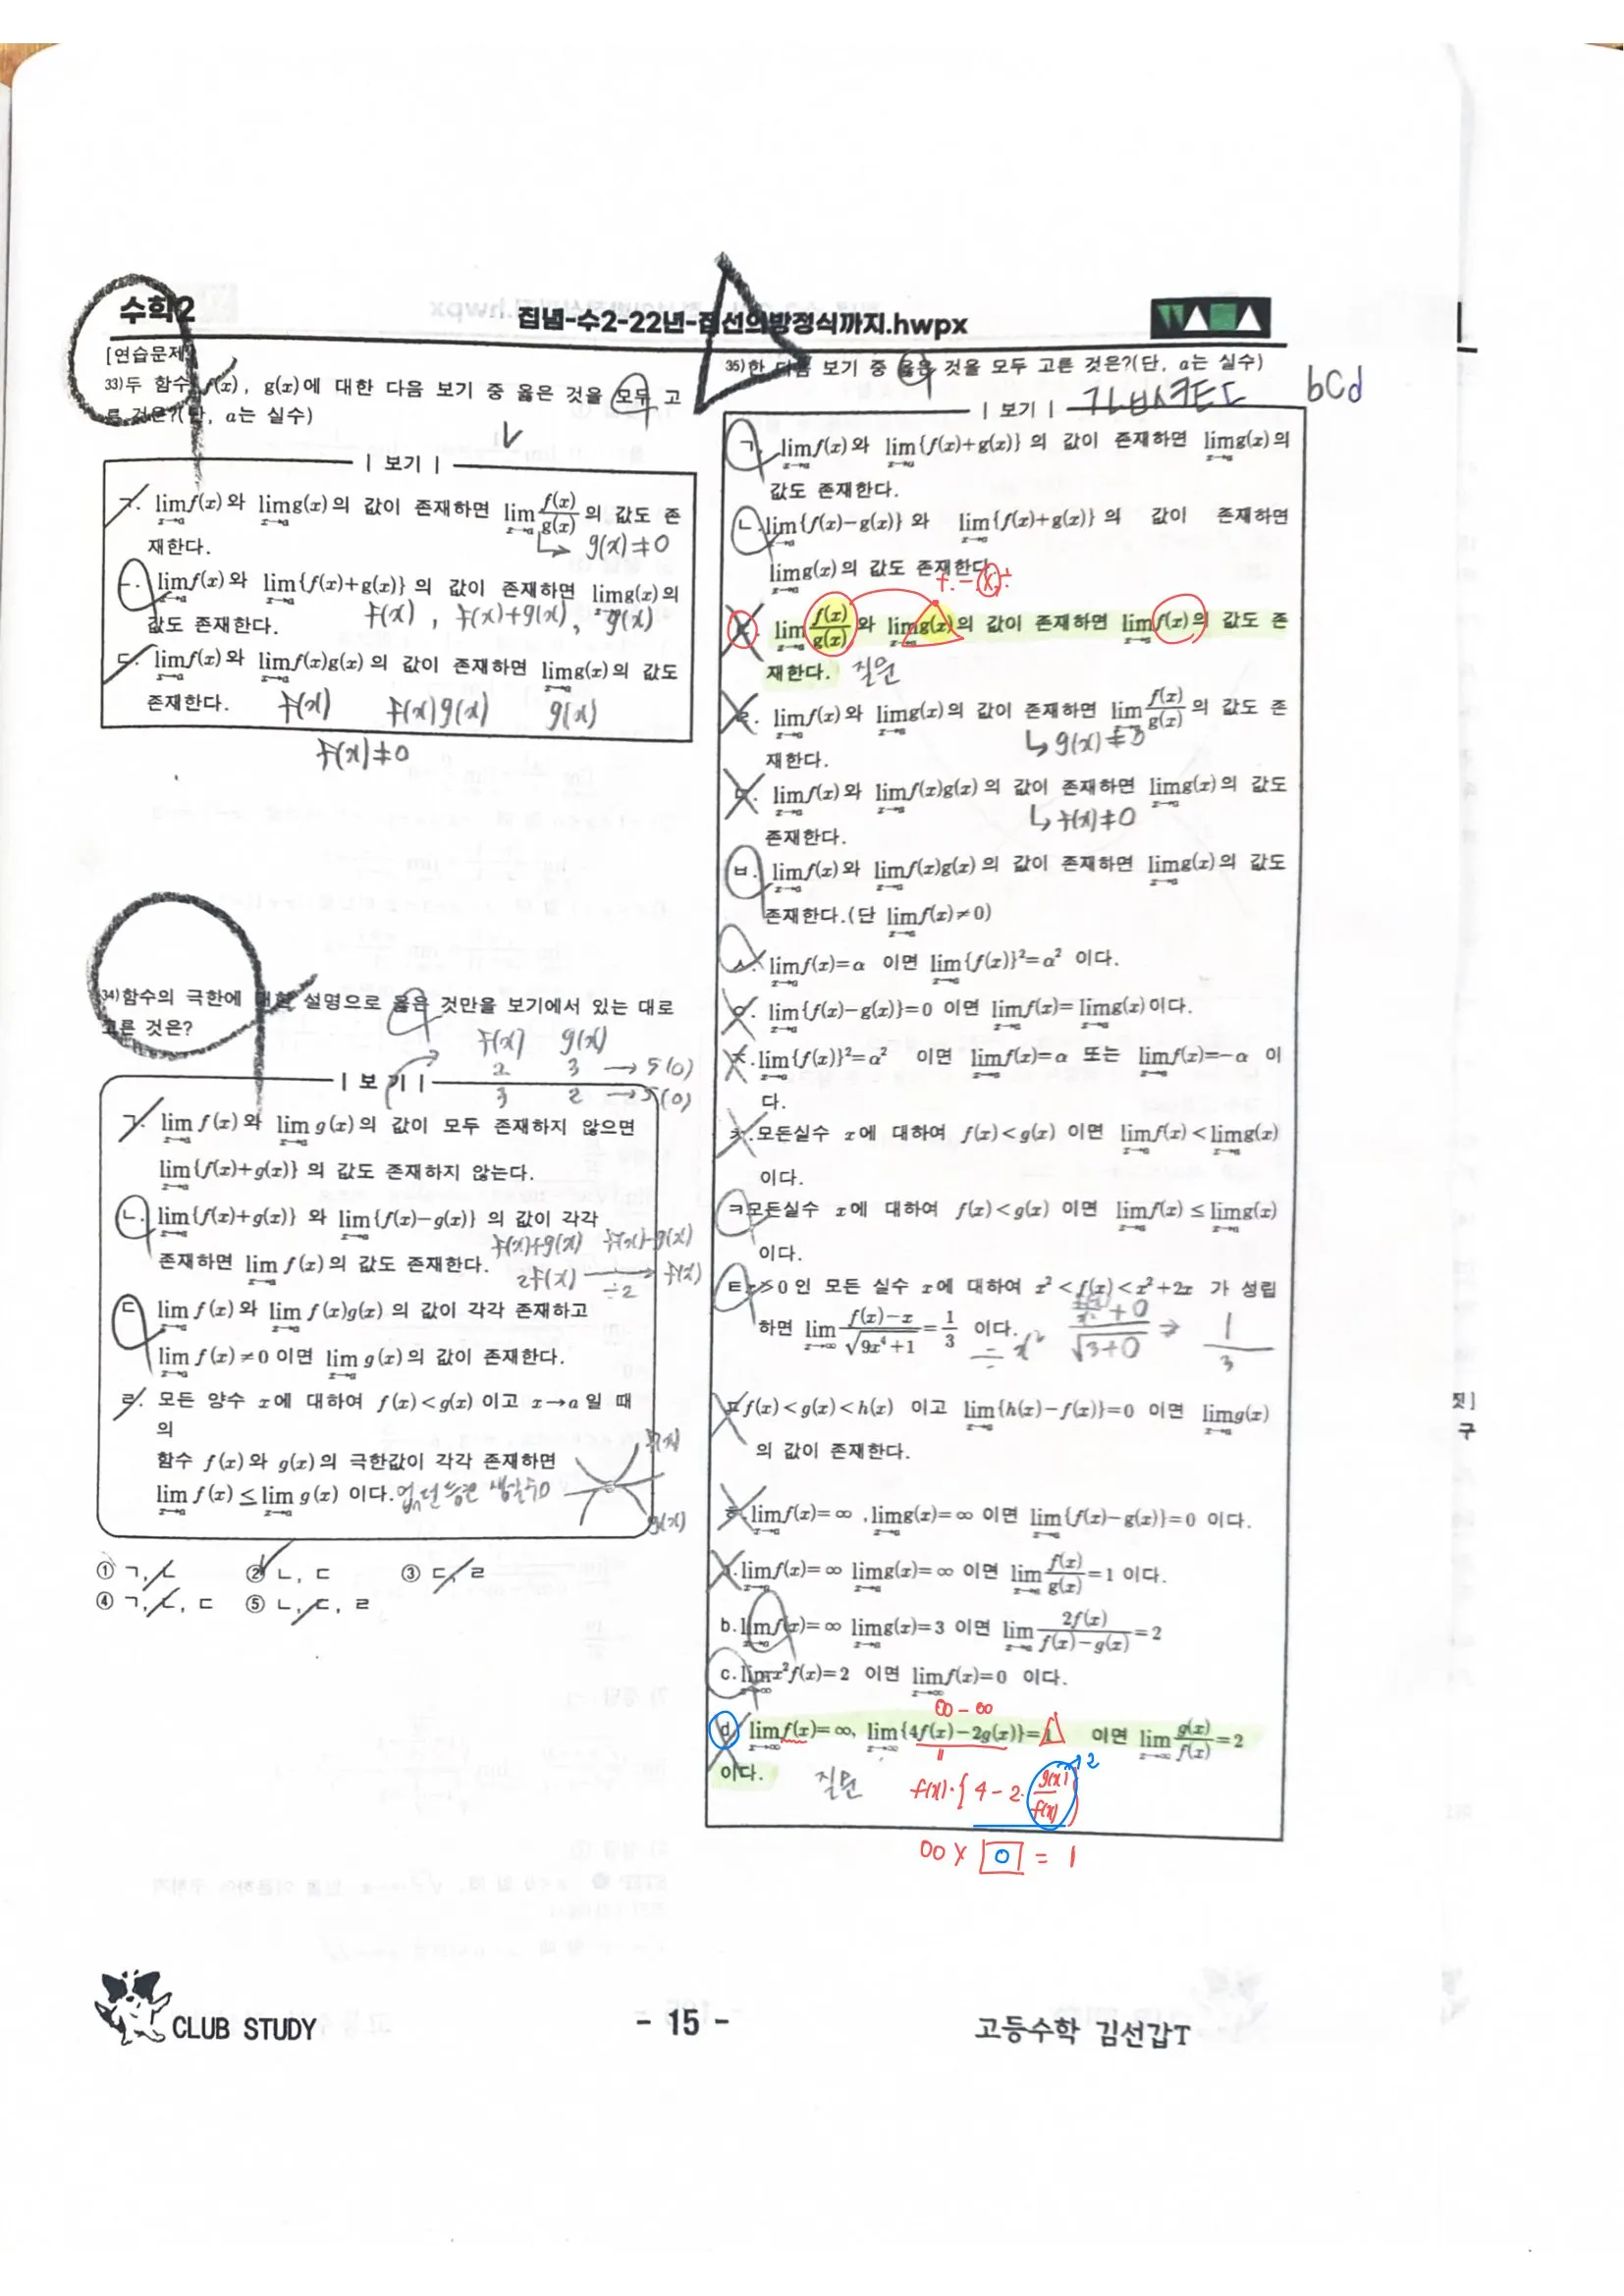 수학2
집념-수2-22년-접선의방정식까지.hwpx
[연습문제]
33)두 함수 f(x), g(x)에 대한 다음 보기 중 옳은 것을 모두 고
른 것은?(단, a는 실수)
| 보기 |
ㄱ. lim_{x→a}f(x)와 lim_{x→a}g(x)의 값이 존재하면 lim_{x→a} f(x)/g(x)의 값도 존
재한다.
↳ g(x)≠0
ㄴ. lim_{x→a}f(x)와 lim_{x→a}{f(x)+g(x)}의 값이 존재하면 lim_{x→a}g(x)의
값도 존재한다.
f(x), f(x)+g(x), g(x)
ㄷ. lim_{x→a}f(x)와 lim_{x→a}f(x)g(x)의 값이 존재하면 lim_{x→a}g(x)의 값도
존재한다.
f(x) f(x)g(x) g(x)
f(x)≠0
34)함수의 극한에 대한 설명으로 옳은 것만을 보기에서 있는 대로
고른 것은?
f(x) g(x)
2 3 → 5(0)
3 2 → 5(0)
| 보기 |
ㄱ. lim_{x→a} f(x)와 lim_{x→a} g(x)의 값이 모두 존재하지 않으면
lim_{x→a}{f(x)+g(x)}의 값도 존재하지 않는다.
ㄴ. lim_{x→a}{f(x)+g(x)} 와 lim_{x→a}{f(x)-g(x)} 의 값이 각각
존재하면 lim_{x→a} f(x)의 값도 존재한다.
f(x)+g(x) f(x)-g(x)
2f(x) → ÷2 f(x)
ㄷ. lim_{x→a} f(x)와 lim_{x→a} f(x)g(x)의 값이 각각 존재하고
lim_{x→a} f(x)≠0이면 lim_{x→a} g(x)의 값이 존재한다.
ㄹ. 모든 양수 x에 대하여 f(x)<g(x)이고 x→a일 때
의
함수 f(x)와 g(x)의 극한값이 각각 존재하면
lim_{x→a} f(x)≤lim_{x→a} g(x)이다.
f(x)
g(x)
① ㄱ, ㄴ ② ㄴ, ㄷ ③ ㄷ, ㄹ
④ ㄱ, ㄴ, ㄷ ⑤ ㄴ, ㄷ, ㄹ
35)한 다음 보기 중 옳은 것을 모두 고른 것은?(단, a는 실수)
| 보기 | ㄱㄴㅂㅅㅋㅌㄷ
bcd
ㄱ. lim_{x→a}f(x)와 lim_{x→a}{f(x)+g(x)}의 값이 존재하면 lim_{x→a}g(x)의
값도 존재한다.
ㄴ. lim_{x→a}{f(x)-g(x)} 와 lim_{x→a}{f(x)+g(x)}의 값이 존재하면
lim_{x→a}g(x)의 값도 존재한다.
+. -. ×. ÷
ㄷ. lim_{x→a} f(x)/g(x)와 lim_{x→a}g(x)의 값이 존재하면 lim_{x→a}f(x)의 값도 존
재한다. 질문
ㄹ. lim_{x→a}f(x)와 lim_{x→a}g(x)의 값이 존재하면 lim_{x→a} f(x)/g(x)의 값도 존
재한다.
ㅁ. lim_{x→a}f(x)와 lim_{x→a}f(x)g(x)의 값이 존재하면 lim_{x→a}g(x)의 값도
존재한다.
↳ f(x)≠0
ㅂ. lim_{x→a}f(x)와 lim_{x→a}f(x)g(x)의 값이 존재하면 lim_{x→a}g(x)의 값도
존재한다.(단 lim_{x→a}f(x)≠0)
ㅅ. lim_{x→a}f(x)=α 이면 lim_{x→a}{f(x)}²=α² 이다.
ㅇ. lim_{x→a}{f(x)-g(x)}=0 이면 lim_{x→a}f(x)=lim_{x→a}g(x)이다.
ㅈ. lim_{x→a}{f(x)}²=α² 이면 lim_{x→a}f(x)=α 또는 lim_{x→a}f(x)=-α 이
다.
ㅊ. 모든실수 x에 대하여 f(x)<g(x) 이면 lim_{x→a}f(x)<lim_{x→a}g(x)
이다.
ㅋ모든실수 x에 대하여 f(x)<g(x) 이면 lim_{x→a}f(x)≤lim_{x→a}g(x)
이다.
ㅌx>0인 모든 실수 x에 대하여 x²<f(x)<x²+2x 가 성립
하면 lim_{x→∞} (f(x)-x)/√(9x⁴+1)=1/3 이다.
÷x²
√3+0 ⇒ 1/3
ㅍf(x)<g(x)<h(x) 이고 lim_{x→a}{h(x)-f(x)}=0 이면 lim_{x→a}g(x)
의 값이 존재한다.
ㅎ lim_{x→a}f(x)=∞ ,lim_{x→a}g(x)=∞ 이면 lim_{x→a}{f(x)-g(x)}=0 이다.
a.lim_{x→a}f(x)=∞ lim_{x→a}g(x)=∞ 이면 lim_{x→a} f(x)/g(x)=1 이다.
b.lim_{x→a}f(x)=∞ lim_{x→a}g(x)=3 이면 lim_{x→a} 2f(x)/(f(x)-g(x))=2
c.lim_{x→∞}x²f(x)=2 이면 lim_{x→∞}f(x)=0 이다.
∞-∞
d. lim_{x→∞}f(x)=∞, lim_{x→∞}{4f(x)-2g(x)}=1 이면 lim_{x→∞} g(x)/f(x)=2
이다. 질문
f(x)·{4-2·g(x)/f(x)} → 2
∞ × 0 = 1
짓]
구
CLUB STUDY
- 15 -
고등수학 김선갑T